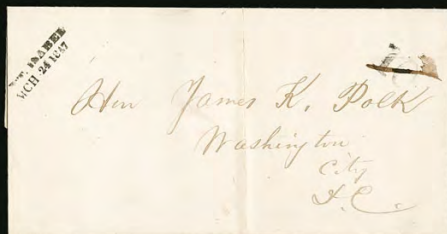 ISABEL
MCH 24 1847
Hon James K. Polk
Washington
City
D.C.